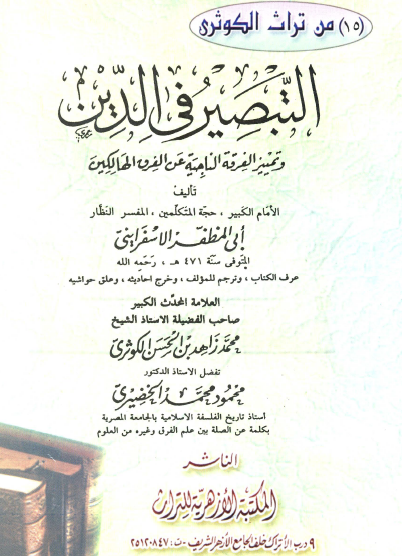 (١٥) من تراث الكوثرى
التبصير في الدين
وتمييز الفرقة الناجية عن الفرق الهالكين
تأليف
الأمام الكبير ، حجة المتكلمين ، المفسر النظار
أبي المظفر الإسفرايني
المتوفى سنة ٤٧١ هـ ، رحمه الله
عرف الكتاب ، وترجم للمؤلف ، وخرج احاديثه ، وعلق حواشيه
العلامة المحدث الكبير
صاحب الفضيلة الاستاذ الشيخ
محمد زاهد بن الحسن الكوثري
تفضل الاستاذ الدكتور
محمود محمد الخضيري
أستاذ تاريخ الفلسفة الاسلامية بالجامعة المصرية
بكلمة عن الصلة بين علم الفرق وغيره من العلوم
الناشر
المكتبة الأزهرية للتراث
٩ درب الأتراك خلف الجامع الأزهر الشريف - ت : ٢٥١٢٠٨٤٧